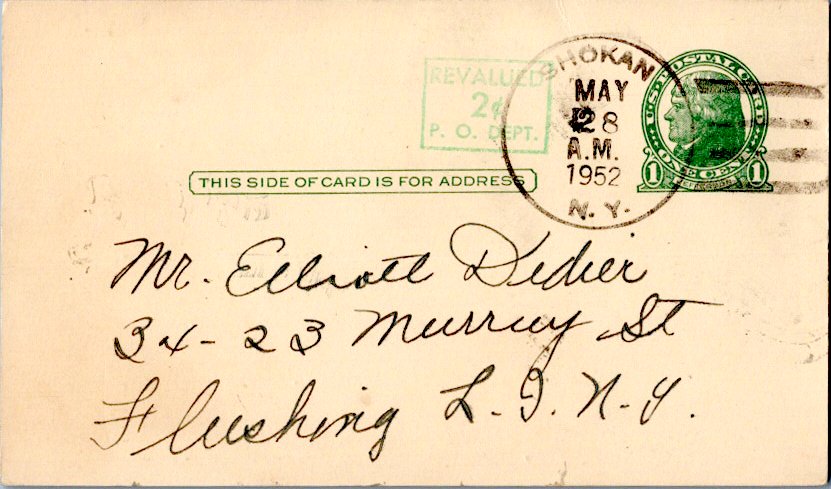 REVALUED
2¢
P. O. DEPT.
SHOKAN
MAY
28
A.M.
1952
N. Y.
U.S. POSTAL CARD
1 ONE CENT 1
JEFFERSON
THIS SIDE OF CARD IS FOR ADDRESS
Mr. Elliott Didier
34-23 Murray St
Flushing L. I. N-Y.